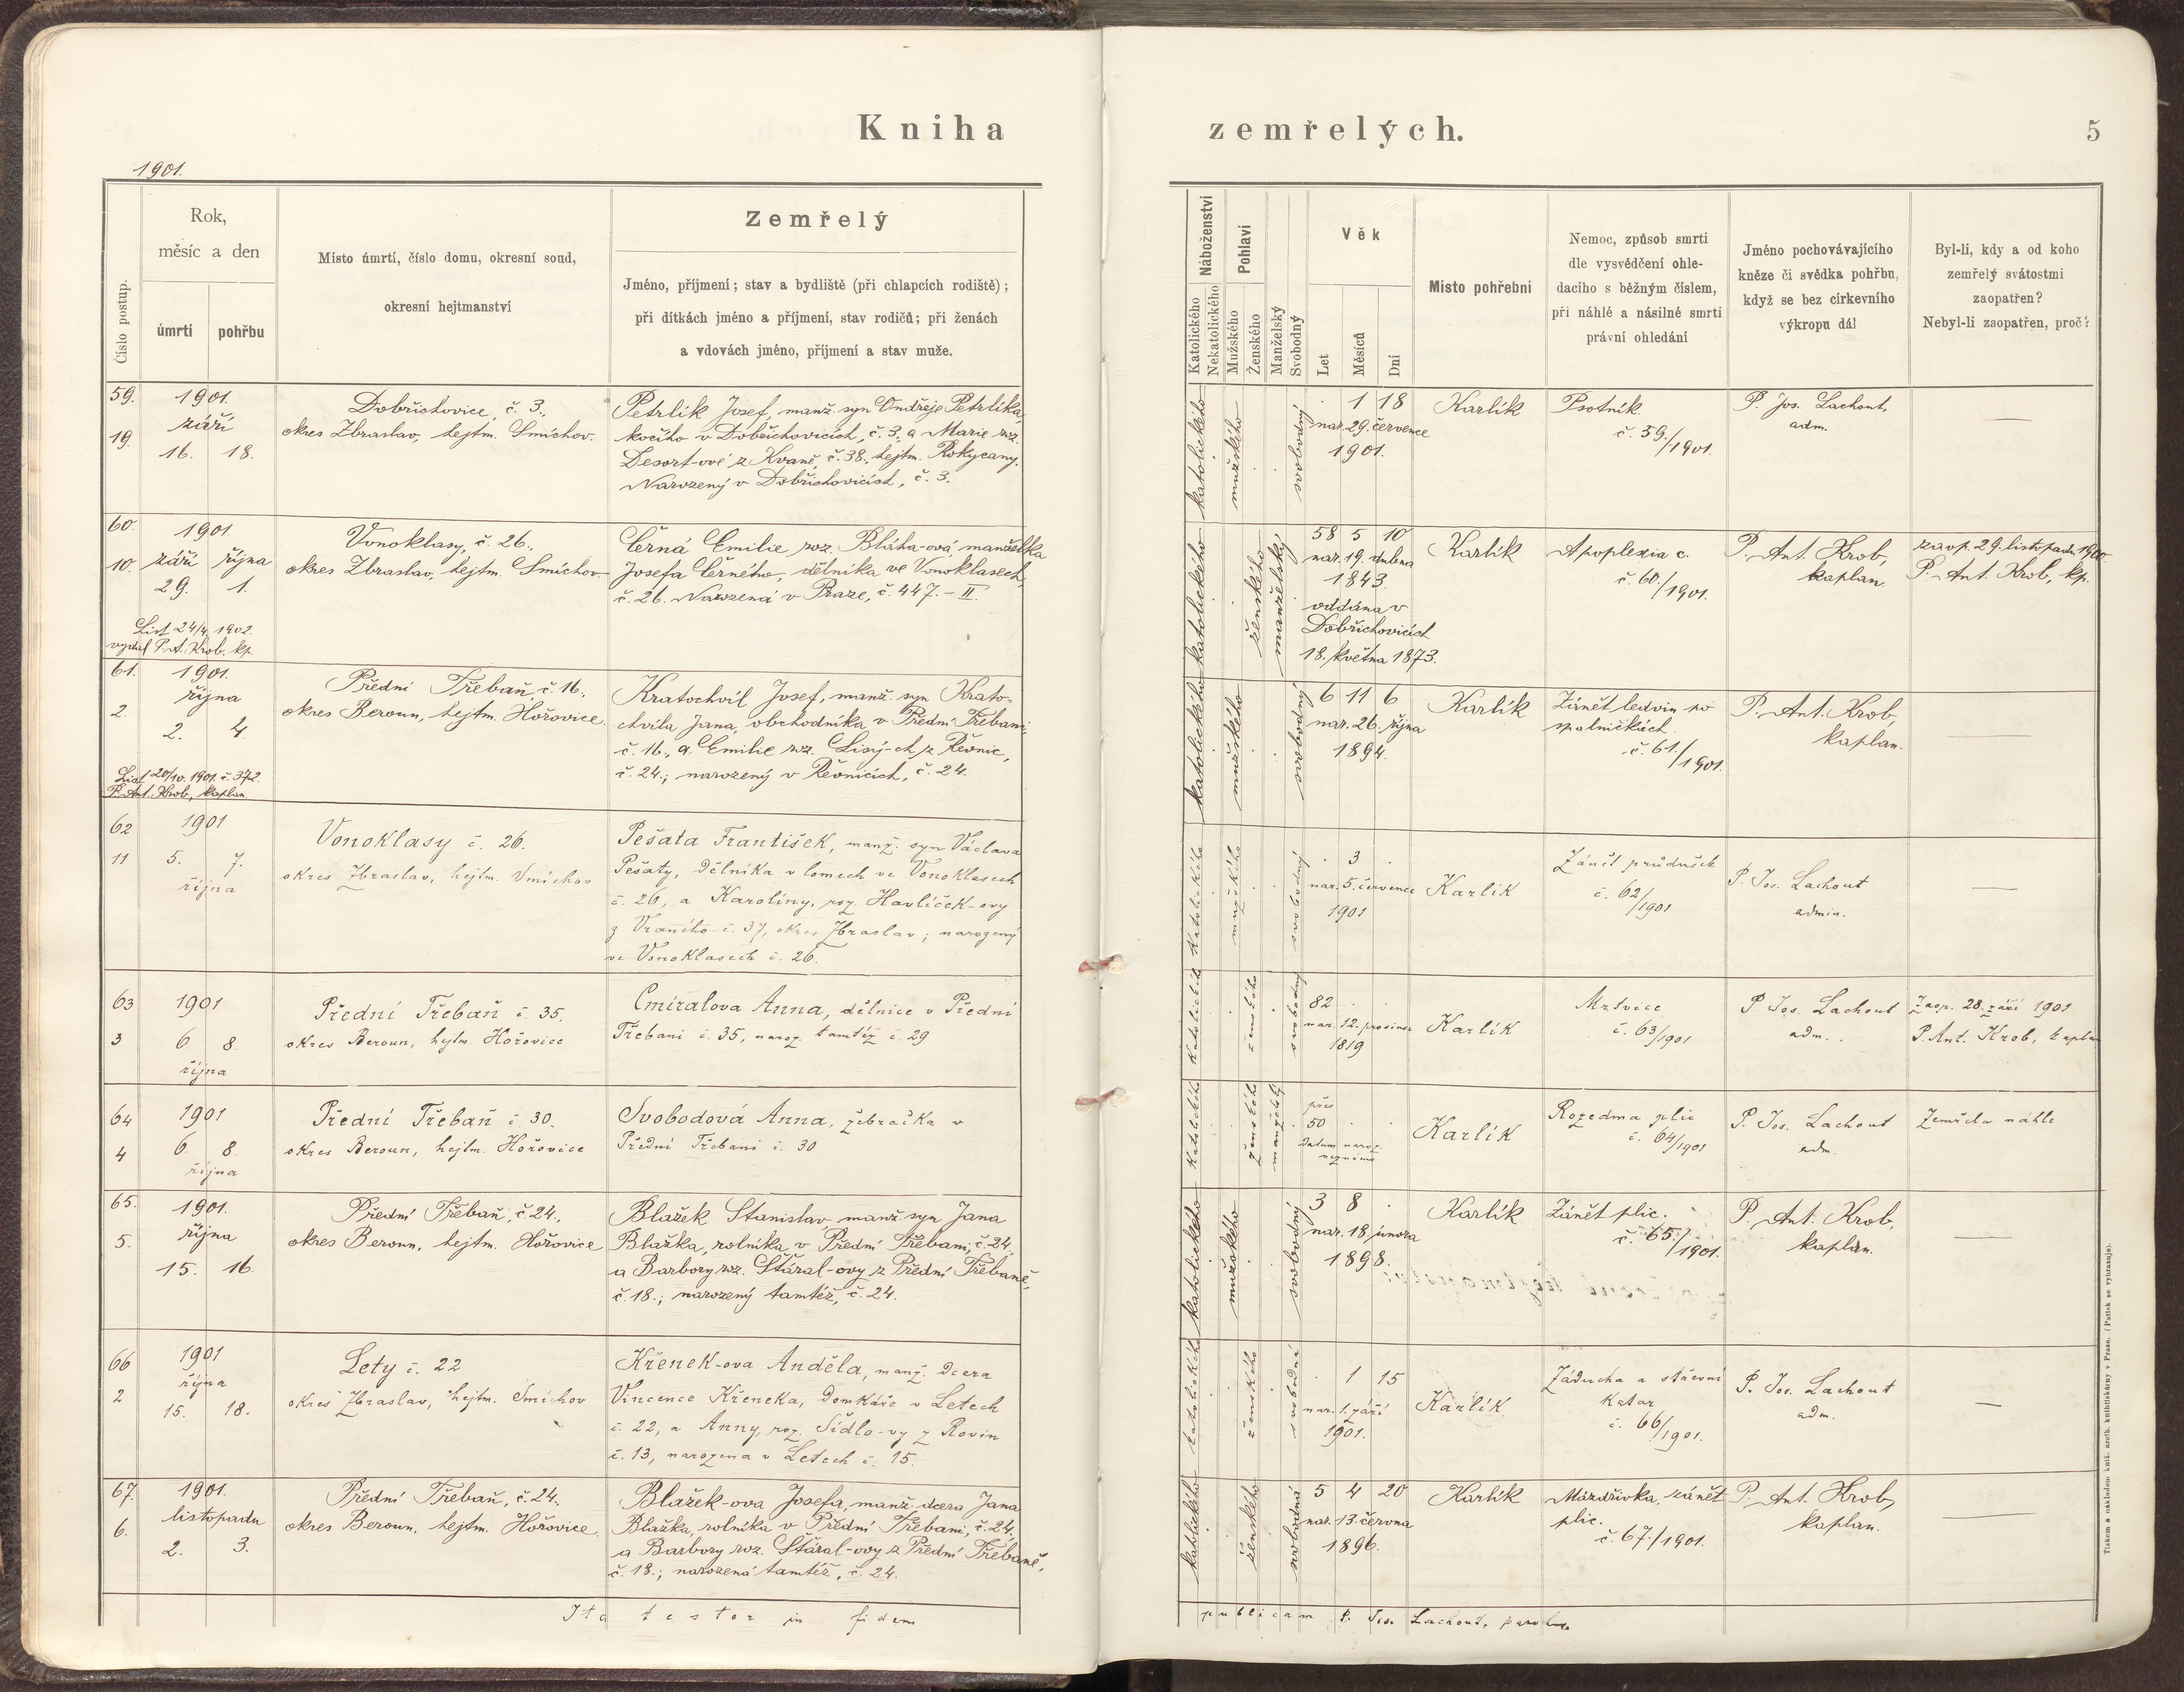 Kniha zemřelých.
5
1901.
Číslo postup.
Rok,
měsíc a den
úmrtí
pohřbu
Místo úmrtí, číslo domu, okresní soud,
okresní hejtmanství
Zemřelý
Jméno, příjmení; stav a bydliště (při chlapcích rodiště);
při dítkách jméno a příjmení, stav rodičů; při ženách
a vdovách jméno, příjmení a stav muže.
Náboženství
Katolického
Nekatolického
Pohlaví
Mužského
Ženského
Manželský
Svobodný
Věk
Let
Měsíců
Dní
Místo pohřební
Nemoc, způsob smrti
dle vysvědčení ohle-
dacího s běžným číslem,
při náhlé a násilné smrti
právní ohledání
Jméno pochovávajícího
kněze či svědka pohřbu,
když se bez církevního
výkropu dál
Byl-li, kdy a od koho
zemřelý svátostmi
zaopatřen?
Nebyl-li zaopatřen, proč?
59.
19.
1901.
září
16. 18.
Dobřichovice, č. 3.,
okres Zbraslav, hejtm. Smíchov.
Petrlík Josef, manž. syn Ondřeje Petrlíka,
kočího v Dobřichovicích, č. 3., a Marie roz.
Desort-ové z Kvaně, č. 38., hejtm. Rokycany.
Narozený v Dobřichovicích, č. 3.
katolického
mužského
svobodný
1 18
nar. 29. července
1901.
Karlík
Psotník
č. 59./1901.
P. Jos. Lachout,
adm.
—
60.
10.
1901.
září října
29. 1.
List 24/4. 1902.
vydal P. A. Krob, kp.
Vonoklasy, č. 26.,
okres Zbraslav, hejtm. Smíchov.
Černá Emilie roz. Bláha-ová, manželka
Josefa Černého, dělníka ve Vonoklasech,
č. 26. Narozená v Praze, č. 447. – II.
katolického
ženského
manželský
58 5 10
nar. 19. dubna
1843.
oddána v
Dobřichovicích
18. května 1873.
Karlík
Apoplexia c.
č. 60./1901.
P. Ant. Krob,
kaplan.
zaop. 29. listopadu 1900.
P. Ant. Krob, kp.
61.
2.
1901.
října
2. 4.
List 20/10. 1901. č. 372.
P. Ant. Krob, kaplan.
Přední Třebaň, č. 16.,
okres Beroun, hejtm. Hořovice.
Kratochvíl Josef, manž. syn Krato-
chvíla Jana, obchodníka v Přední Třebani,
č. 16., a Emilie roz. Lisý-ch z Řevnic,
č. 24.; narozený v Řevnicích, č. 24.
katolického
mužského
svobodný
6 11 6
nar. 26. října
1894.
Karlík
Zánět ledvin po
spalničkách.
č. 61./1901.
P. Ant. Krob,
kaplan.
—
62
11
1901
5. 7.
října
Vonoklasy č. 26.
okres Zbraslav, hejtm. Smíchov
Pešata František, manž. syn Václava
Pešaty, dělníka v lomech ve Vonoklasech
č. 26, a Karolíny, roz. Havlíček-ovy
z Vraného č. 37, okres Zbraslav; narozený
ve Vonoklasech č. 26.
katolického
mužského
svobodný
3
nar. 5. července
1901
Karlík
Zánět průdušek
č. 62/1901
P. Jos. Lachout
admin.
—
63
3
1901
6 8.
října
Přední Třebaň č. 35.
okres Beroun, hejtm. Hořovice
Cmíralova Anna, dělnice v Přední
Třebani č. 35, naroz. tamtéž č. 29
katolického
ženského
svobodný
82
nar. 12. prosince
1819
Karlík
Mrtvice
č. 63/1901
P. Jos. Lachout
adm.
Zaop. 28. září 1901
P. Ant. Krob, kaplan
64
4
1901
6. 8.
října
Přední Třebaň č. 30.
okres Beroun, hejtm. Hořovice
Svobodová Anna, žebračka v
Přední Třebani č. 30
katolického
ženského
manželský
přes
50
datum naroz.
neznámé
Karlík
Rozedma plic
č. 64/1901
P. Jos. Lachout
adm.
Zemřela náhle
65.
5.
1901.
října
15. 16.
Přední Třebaň, č. 24.,
okres Beroun, hejtm. Hořovice
Blažek Stanislav, manž. syn Jana
Blažka, rolníka v Přední Třebani, č. 24.,
a Barbory roz. Stáral-ovy z Přední Třebaně,
č. 18.; narozený tamtéž, č. 24.
katolického
mužského
svobodný
3 8
nar. 18. února
1898.
Karlík
Zánět plic.
č. 65./1901.
P. Ant. Krob,
kaplan.
—
66
2
1901
října
15. 18.
Lety č. 22
okres Zbraslav, hejtm. Smíchov
Křenek-ova Anděla, manž. dcera
Vincence Křeneka, domkáře v Letech
č. 22, a Anny, roz. Sídlo-vy z Rovin
č. 13, narozena v Letech č. 15.
katolického
ženského
svobodná
1 15
nar. 1. září
1901.
Karlík
Záducha a střevní
katar
č. 66/1901.
P. Jos. Lachout
adm.
—
67.
6.
1901.
listopadu
2. 3.
Přední Třebaň, č. 24.,
okres Beroun, hejtm. Hořovice.
Blažek-ova Josefa, manž. dcera Jana
Blažka, rolníka v Přední Třebani, č. 24.,
a Barbory roz. Stáral-ovy z Přední Třebaně,
č. 18.; narozená tamtéž, č. 24.
katolického
ženského
svobodná
5 4 20
nar. 13. června
1896.
Karlík
Mázdřivka, zánět
plic.
č. 67./1901.
P. Ant. Krob,
kaplan.
—
Ita testor in fidem publicam P. Jos. Lachout,
Tiskem a nákladem kníž. arcib. knihtiskárny v Praze. (Patisk se vyhrazuje).